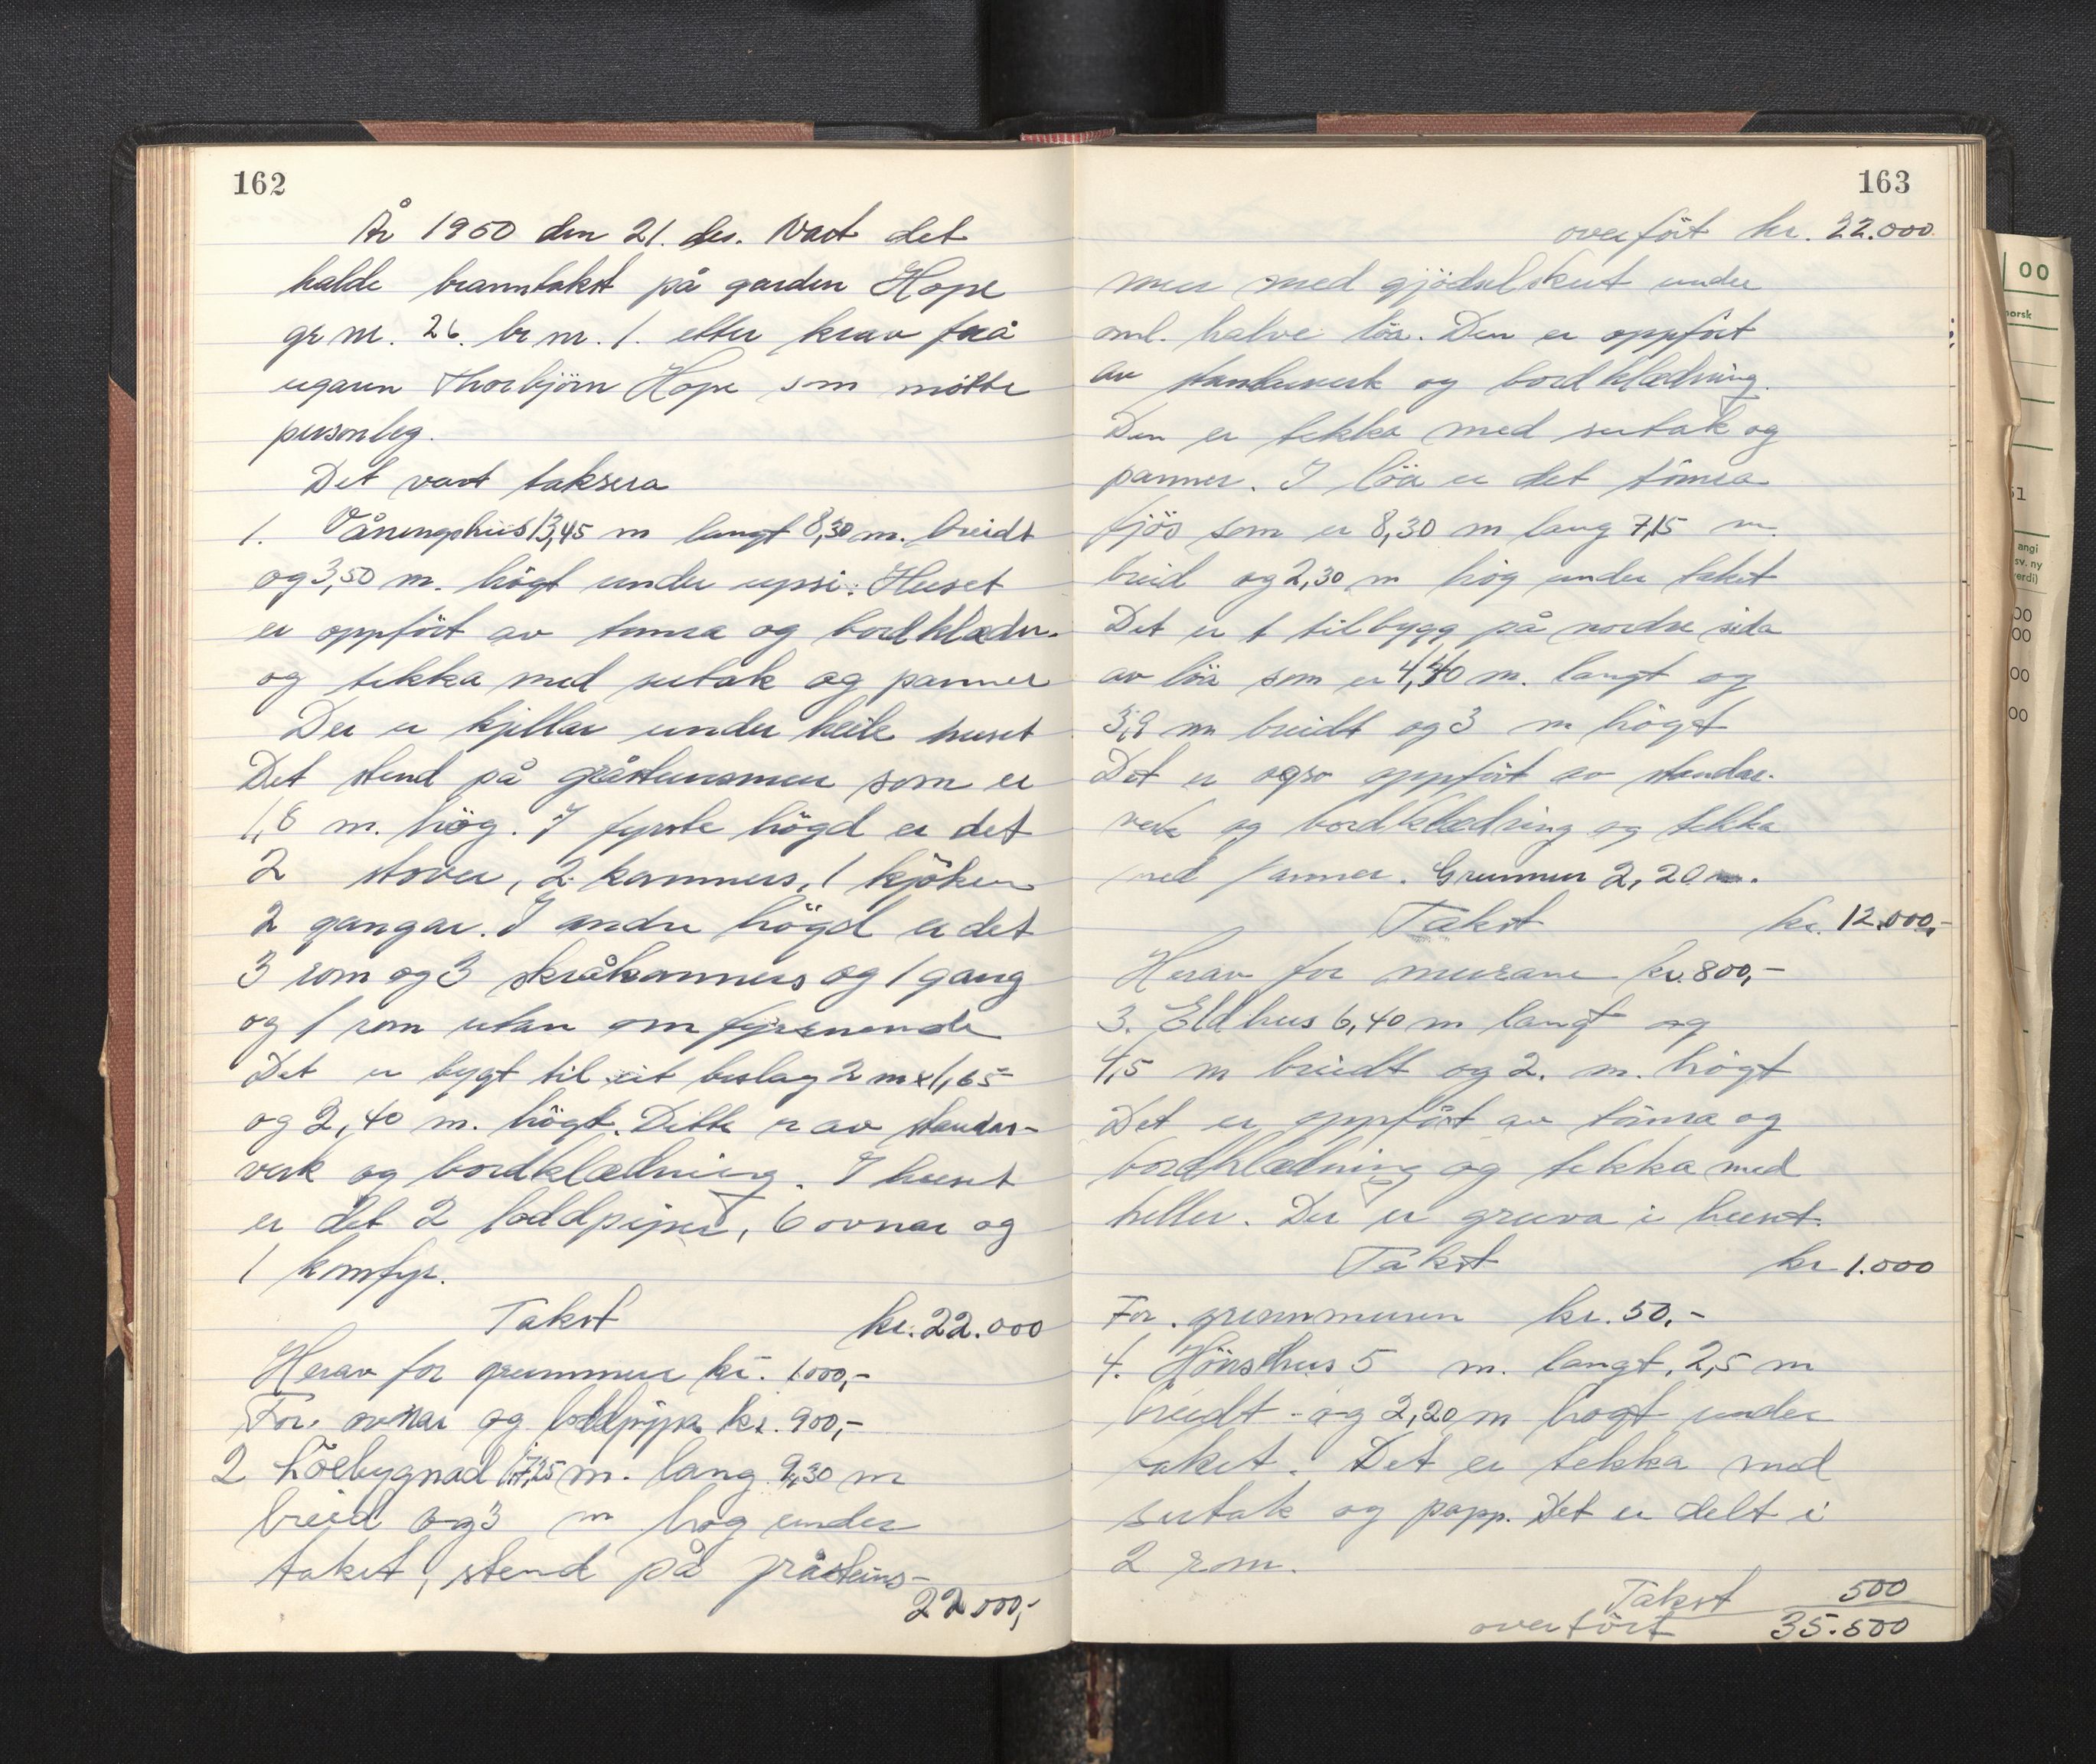 162
År 1950 den 21. des. Vart det
halde branntakst på garden Hope
gr nr. 26. br nr. 1. etter krav frå
eigaren Thorbjörn Hope som møtte
personleg.
Det vart taksera
1. Våningshus 13,45 m langt 8,30 m. breidt
og 3,50 m. högt under upsi. Huset
er oppfört av tømra og bordklæder.
og tekka med sutak og panner
Der er kjellar under heile huset
Det stend på gråsteinsmur som er
1,8 m. høg. I fyrste högd er det
2 stover, 2 kammers, 1 kjöken
2 gangar. I andre högd er det
3 rom og 3 skråkammers og 1 gang
og 1 rom utan om fyrenemnde
Det er bygt til eit beslag 2 m x 1,65
og 2,40 m. högt. Dette er av standar-
verk og bordklædning. I huset
er det 2 loddpiper, 6 ovnar og
1 komfyr.
Takst kr. 22.000
Herav for grunnmur kr. 1000,-
For. ovnar og loddpipa kr. 900,-
2 Löebygnad 17,25 m. lang 9,30 m
breid og 3 m høg under
taket, stend på gråsteins-
22000,-
163
overfört kr. 22.000
mur med gjödselskut under
oml. halve löa. Den er oppfört
av standarverk og bordklædning.
Den er tekka med sutak og
panner. I löa er det tömra
fjös som er 8,30 m lang 7,15 m.
breid og 2,30 m hög under taket
Det er 1 tilbygg på nordre sida
av löa som er 4,40 m. langt og
3,9 m breidt og 3 m högt
Det er ogso oppfört av standar-
verk og bordklædning og tekka
med panner. Grunnmur 2,20 m.
Takst kr. 12.000,-
Herav for murane kr. 800,-
3. Eldhus 6,40 m langt og
4,5 m breidt og 2. m. högt
Det er oppfört av tömra og
bordklædning og tekka med
heller. Der er gruva i huset.
Takst kr 1.000
For. grunnmuren kr. 50,-
4. Hönsehus 5 m. langt, 2,5 m
breidt - og 2,20 m høgt under
taket. Det er tekka med
sutak og papp. Det er delt i
2 rom.
Takst 500
overfört 35.500
00
norsk
51
angi
sv. ny
verdi)
00
00
00
00